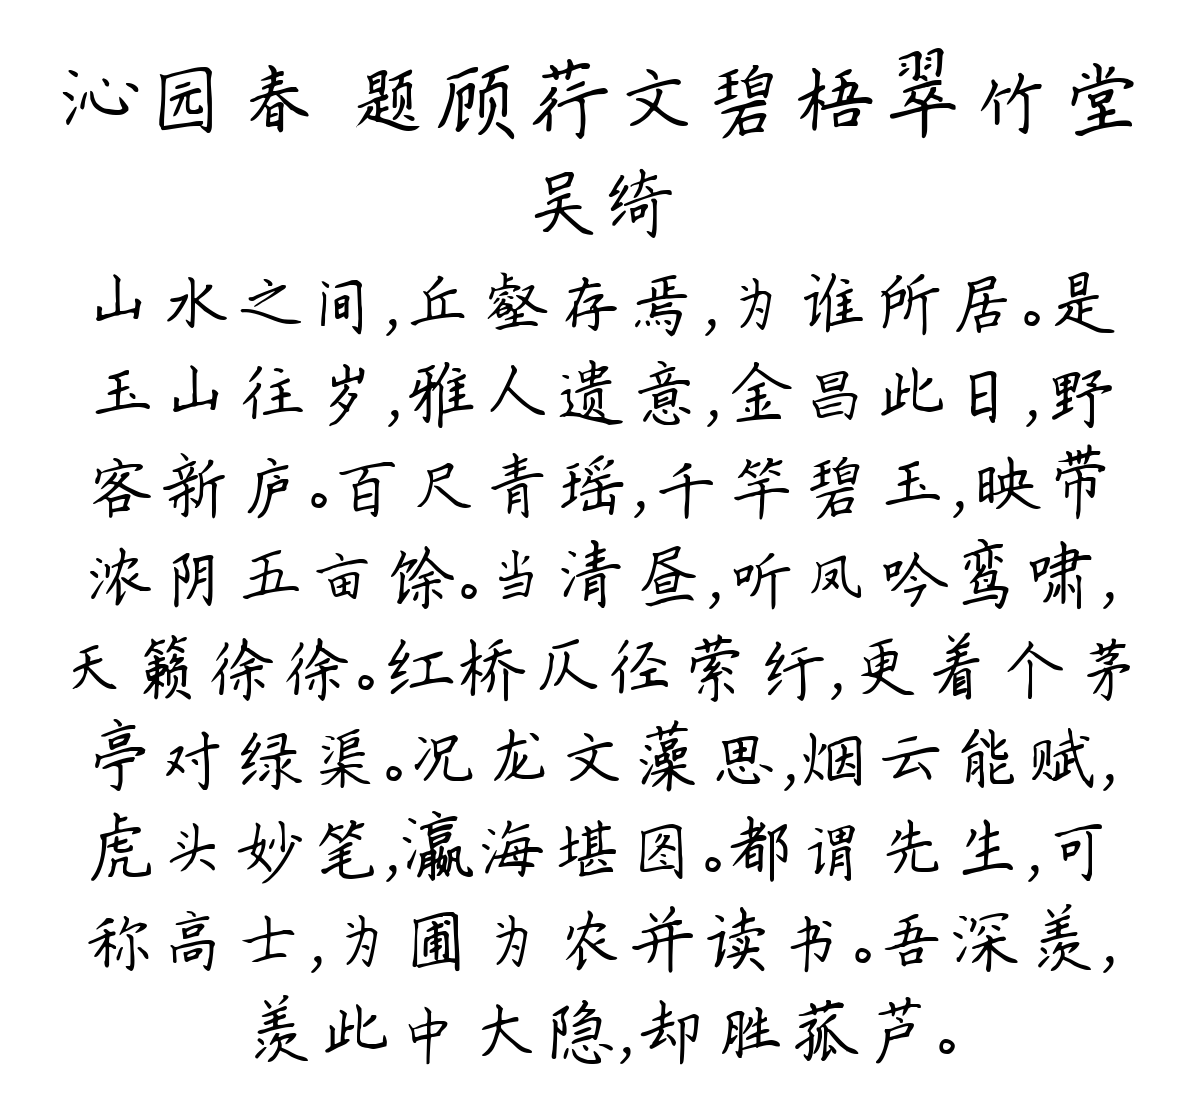 沁园春 题顾荇文碧梧翠竹堂
吴绮
山水之间,丘壑存焉,为谁所居。是
玉山往岁,雅人遗意,金昌此日,野
客新庐。百尺青瑶,千竿碧玉,映带
浓阴五亩馀。当清昼,听凤吟鸾啸,
天籁徐徐。红桥仄径萦纡,更着个茅
亭对绿渠。况龙文藻思,烟云能赋,
虎头妙笔,瀛海堪图。都谓先生,可
称高士,为圃为农并读书。吾深羡,
羡此中大隐,却胜菰芦。